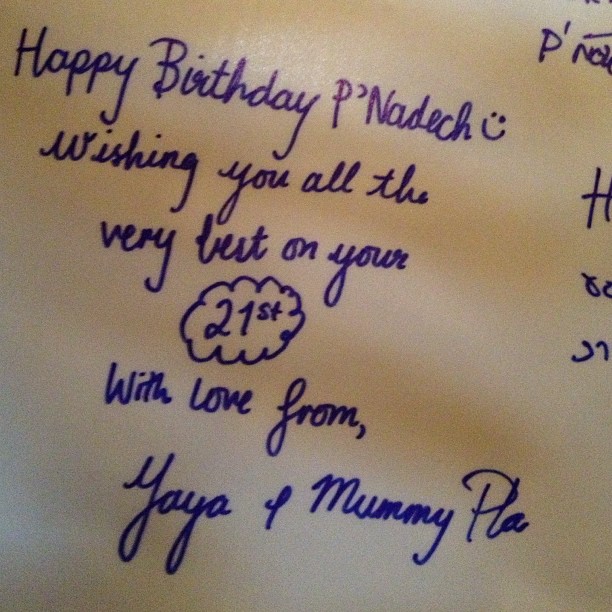 Happy Birthday P'Nadech :)
Wishing you all the
very best on your
21st
With love from,
Yaya & Mummy Pla
P'
H